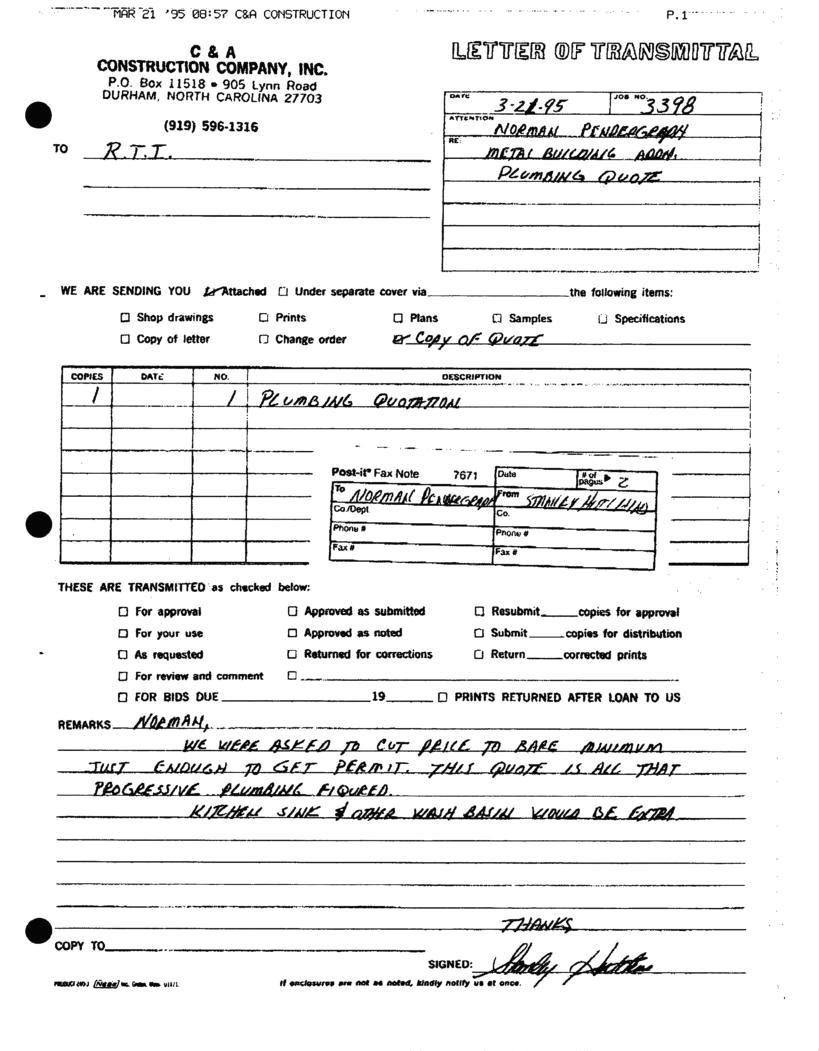 MAR 21 '95 08:57 C&A CONSTRUCTION P.1
C & A
CONSTRUCTION COMPANY, INC.
P.O. Box 11518 • 905 Lynn Road
DURHAM, NORTH CAROLINA 27703
(919) 596-1316
LETTER OF TRANSMITTAL
DATE 3-21-95 JOB NO. 3398
ATTENTION NORMAN PENDERGRAPH
RE: METAL BUILDING ADDN.
PLUMBING QUOTE
TO R.T.I.
WE ARE SENDING YOU Attached Under separate cover via the following items:
Shop drawings Prints Plans Samples Specifications
Copy of letter Change order COPY OF QUOTE
COPIES DATE NO. DESCRIPTION
1 1 PLUMBING QUOTATION
Post-it® Fax Note 7671 Date # of pages 2
To NORMAN PENDERGRAPH From STANLEY
Co./Dept. Co.
Phone # Phone #
Fax # Fax #
THESE ARE TRANSMITTED as checked below:
For approval Approved as submitted Resubmit copies for approval
For your use Approved as noted Submit copies for distribution
As requested Returned for corrections Return corrected prints
For review and comment
FOR BIDS DUE 19 PRINTS RETURNED AFTER LOAN TO US
REMARKS NORMAN,
WE WERE ASKED TO CUT PRICE TO BARE MINIMUM
JUST ENOUGH TO GET PERMIT. THIS QUOTE IS ALL THAT
PROGRESSIVE PLUMBING FIGURED.
KITCHEN SINK & OTHER WASH BASIN WOULD BE EXTRA
THANKS
COPY TO
SIGNED:
If enclosures are not as noted, kindly notify us at once.